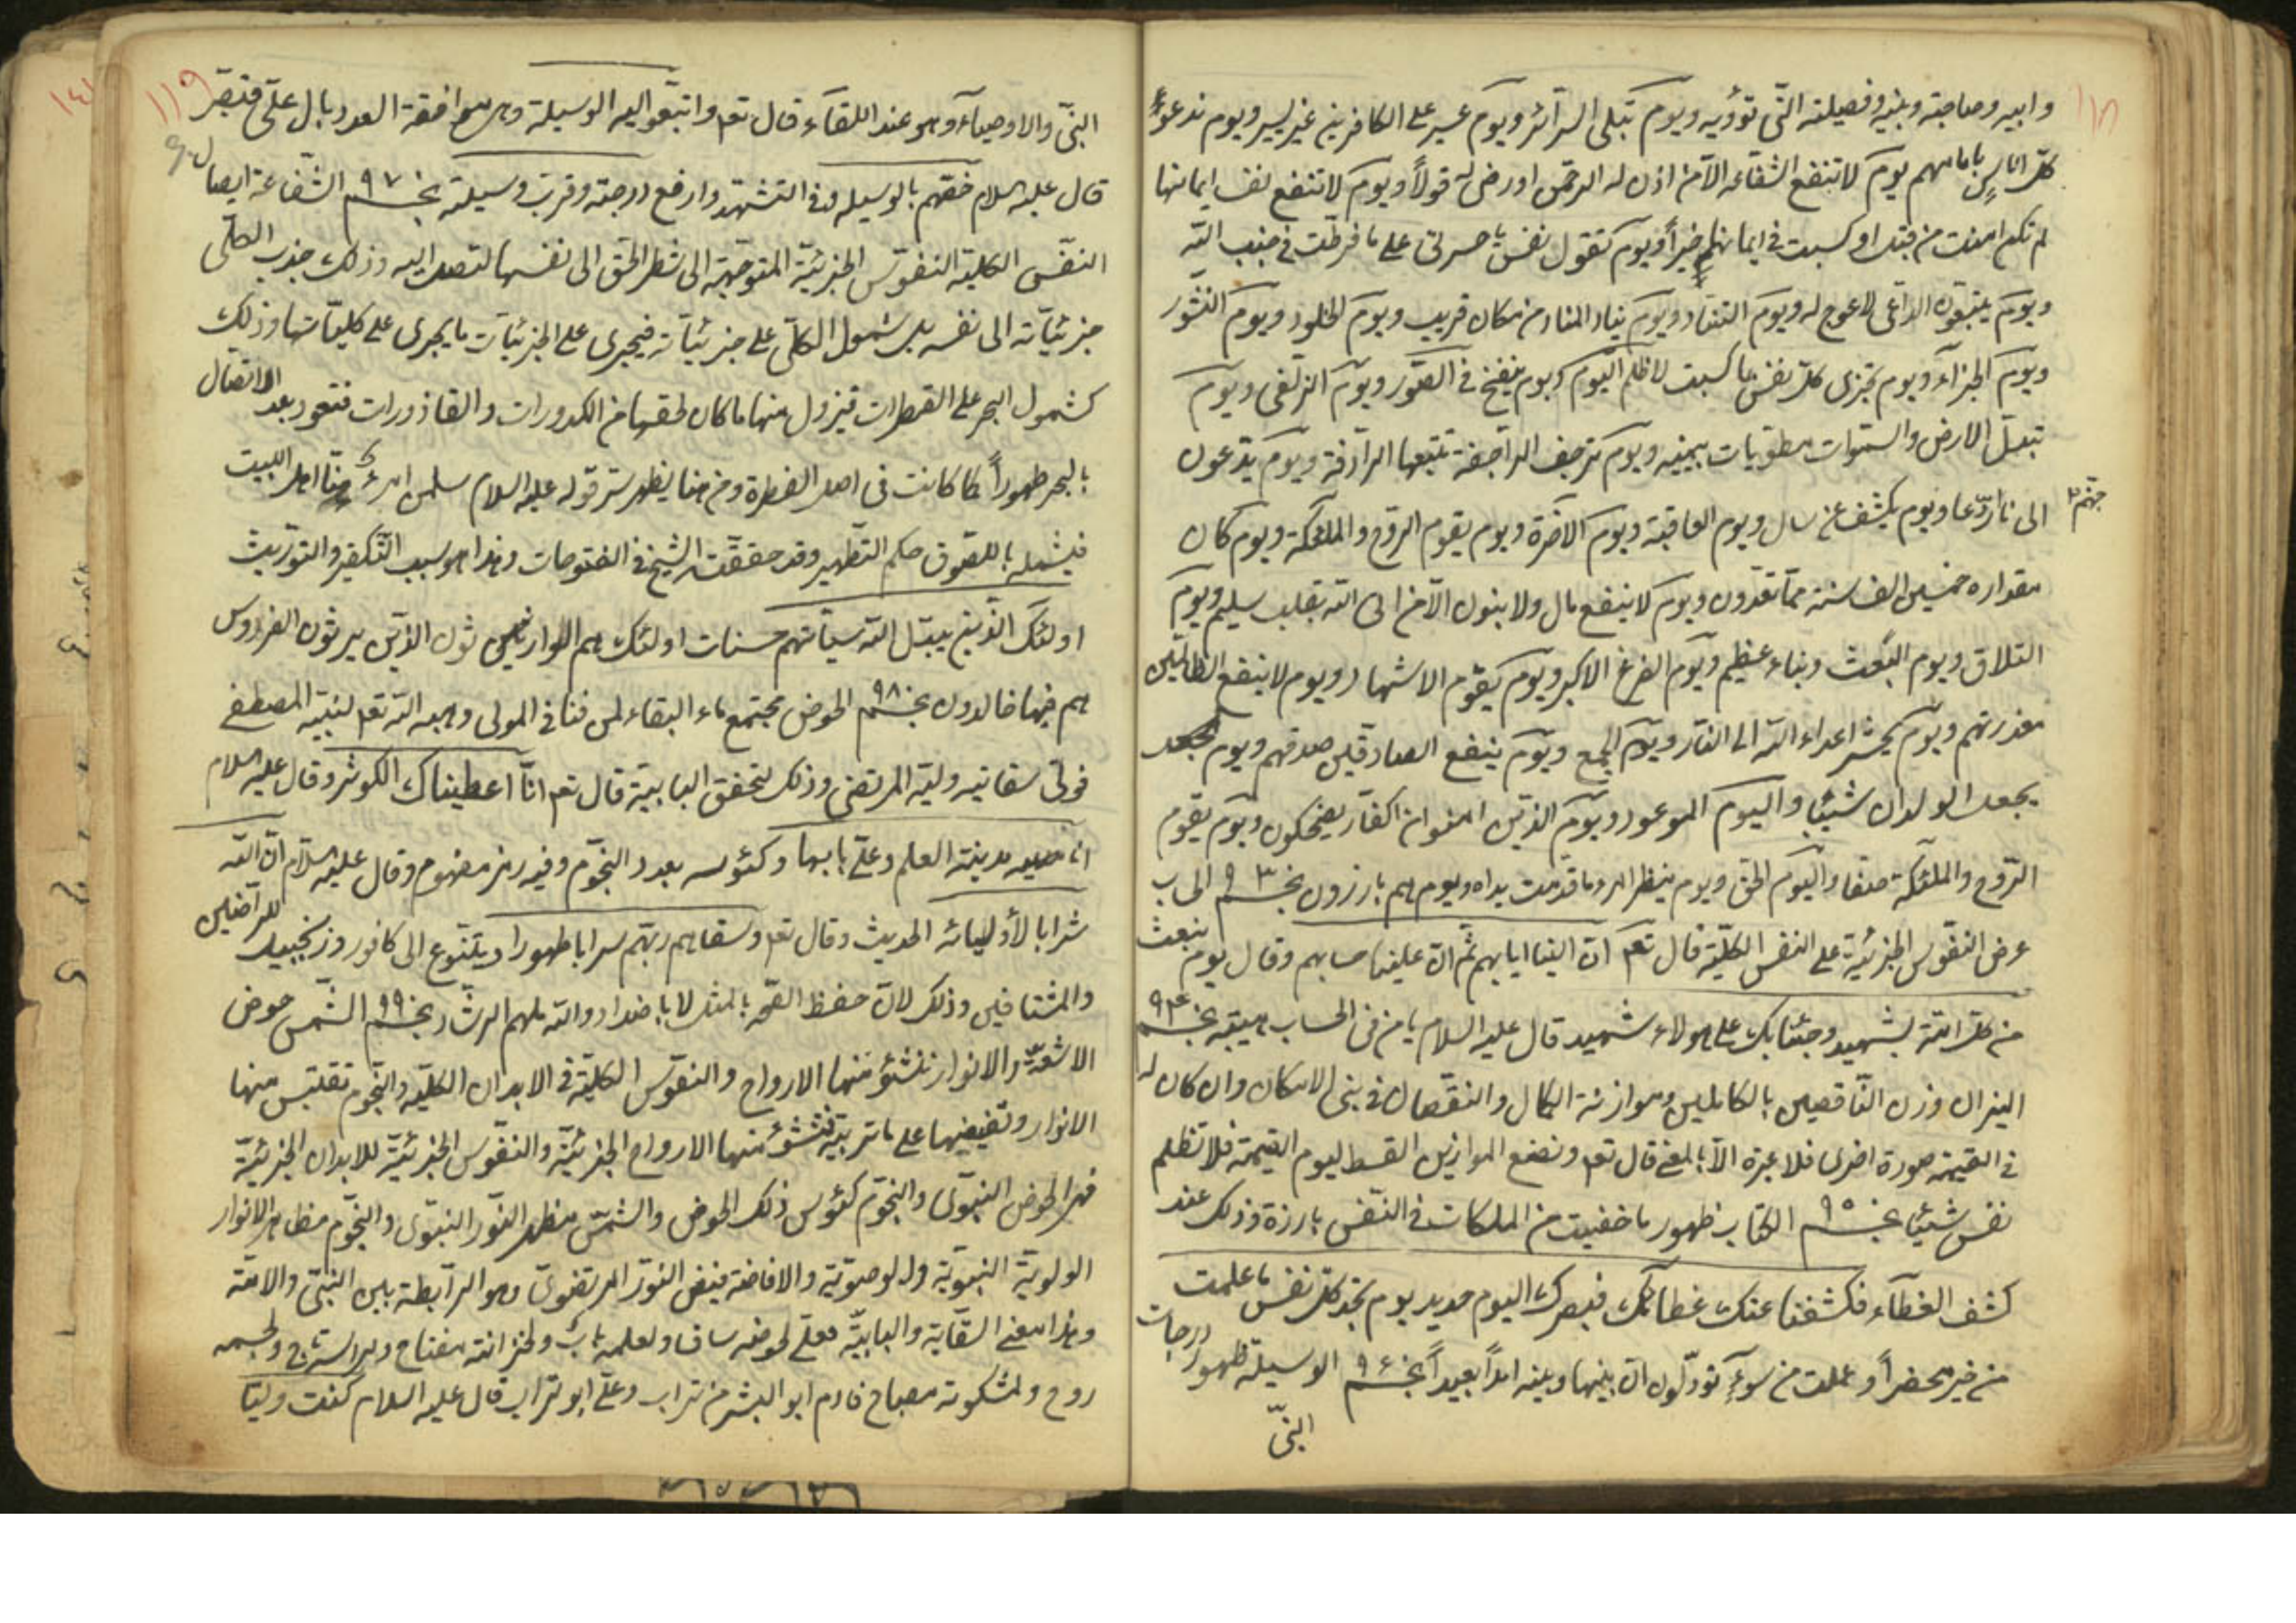 ١١٨
وابيه وصاحبته وبنيه وفصيلته التي تؤويه ويوم تبلى السرآئر ويوم عسير على الكافرين غير يسير ويوم ندعو
كل اناس بامامهم يوم لا تنفع الشفاعة الا من اذن له الرحمن اورضى له قولاً ويوم لا تنفع نفسا ايمانها
لم تكن امنت من قبل او كسبت في ايمانها خيراً ويوم تقول نفس يا حسرتى على ما فرطت في جنب الله
ويوم يتبعون الداعى لا عوج له ويوم التناد ويوم يناد المناد من مكان قريب ويوم الخلود ويوم النشور
ويوم الجزآء ويوم تجزى كل نفس بما كسبت لا ظلم اليوم ويوم ينفخ في الصور ويوم الزلفى ويوم
تبدل الارض والسموات مطويات بيمينه ويوم ترجف الراجفة تتبعها الرادفة ويوم يدعون
الى نار جهنم دعا ويوم يكشف عن ساق ويوم العاقبة ويوم الآخرة ويوم يقوم الروح والملئكة ويوم كان
مقداره خمسين الف سنة مما تعدون ويوم لا ينفع مال ولا بنون الا من اتى الله بقلب سليم ويوم
التلاق ويوم البعث ونباء عظيم ويوم الفزع الاكبر ويوم يقوم الاشهاد ويوم لا ينفع الظالمين
معذرتهم ويوم يحشر اعداء الله الى النار ويوم الجمع ويوم ينفع الصادقين صدقهم ويوم
يجعل الولدان شيبا واليوم الموعود ويوم الذين امنوا من الكفار يضحكون ويوم يقوم
الروح والملئكة صفا واليوم الحق ويوم ينظر المرء ما قدمت يداه ويوم هم بارزون نجم ٩٣ الحساب
عرض النفوس الجزئية على النفس الكلية قال تعه ان الينا ايابهم ثم ان علينا حسابهم وقال يوم نبعث
من كل امة بشهيد وجئنا بك على هولاء شهيد قال عليه السلام يا من في الحساب هيبته نجم ٩٤
الميزان وزن الناقصين بالكاملين وموازنة الكمال والنقصان في بنى الامكان وان كان له
في القيمة صورة اخرى فلا عبرة الا بالمعنى قال تعه ونضع الموازين القسط ليوم القيمة فلا تظلم
نفس شيئا نجم ٩٥ الكتاب ظهور ما خفيت من الملكات في النفس بارزة وذلك عند
كشف الغطآء فكشفنا عنك غطائك فبصرك اليوم حديد يوم تجد كل نفس ما عملت
من خير محضراً وما عملت من سوءٍ تود لو ان بينها وبينه امداً بعيداً نجم ٩٦ الوسيلة ظهور درجات
النبى
١١٩
النبى والاوصيآء وهو عند اللقآء قال تعه وابتغوا اليه الوسيلة وهى موافقة العدد بال على فتبصر
قال عليه السلام خصهم بالوسيله وفى التشهد وارفع درجته وقرب وسيلته نجم ٩٧ الشفاعة ايصال
النفس الكلية النفوس الجزئية المتوجهة الى شطر الحق الى نفسها لتصل اليه وذلك جذب الكلى
جزئياته الى نفسه بل شمول الكلى على جزئياته فيجرى على الجزئيات ما يجرى على كلياتها وذلك
كشمول البحر على القطرات فيزول منها ما كان لحقها من الكدورات والقاذورات فتعود بعد الاتصال
بالبحر طهوراً كما كانت فى اصل الفطرة ومن هنا يظهر سر قوله عليه السلام سلمان منا اهل البيت
فيشمله باللصوق حكم التطهير وقد حققت الشيخ فى الفتوحات وهذا هو سبب التكفير والتوريث
اولئك الذين يبدل الله سيآتهم حسنات اولئك هم الوارثون الذين يرثون الفردوس
هم فيها خالدون نجم ٩٨ الحوض مجتمع ماء البقاء لمن فنا فى المولى وهبه الله تعه لنبيه المصطفى
فولى سقايته وليه المرتضى وذلك لتحقق البابية قال تعه انا اعطيناك الكوثر وقال عليه السلام
انا مدينة العلم وعلى بابها وكئوسه بعدد النجوم وفيه رمز مفهوم وقال عليه السلام ان لله
شرابا لأوليائه الحديث وقال تعه وسقاهم ربهم شرابا طهورا ويتنوع الى كافور وزنجبيل للراضين
والمشتاقين وذلك لان حفظ الصحة بالمثل لا باضداد والله ملهم الرشاد نجم ٩٩ الشمس حوض
الاشعة والانوار تنشؤ منها الارواح والنفوس الكلية فى الابدان الكلية والنجوم تقتبس منها
الانوار وتفيضها على ما تربيه فتنشؤ منها الارواح الجزئية والنفوس الجزئية للابدان الجزئية
فهى الحوض النبوى والنجوم كئوس ذلك الحوض والشمس مظهر النور النبوى والنجوم مظاهر الانوار
الولوية النبوية والوصوية والافاضة فيض النور المرتضوى وهو الرابطة بين النبى والامة
وهذا معنى السقاية والبابية فعلى لحوضه ساق ولعلمه باب ولخزانته مفتاح ولجسمه
روح ولمشكوته مصباح فادم ابو البشر من تراب وعلى ابو تراب قال عليه السلام كنت وليا